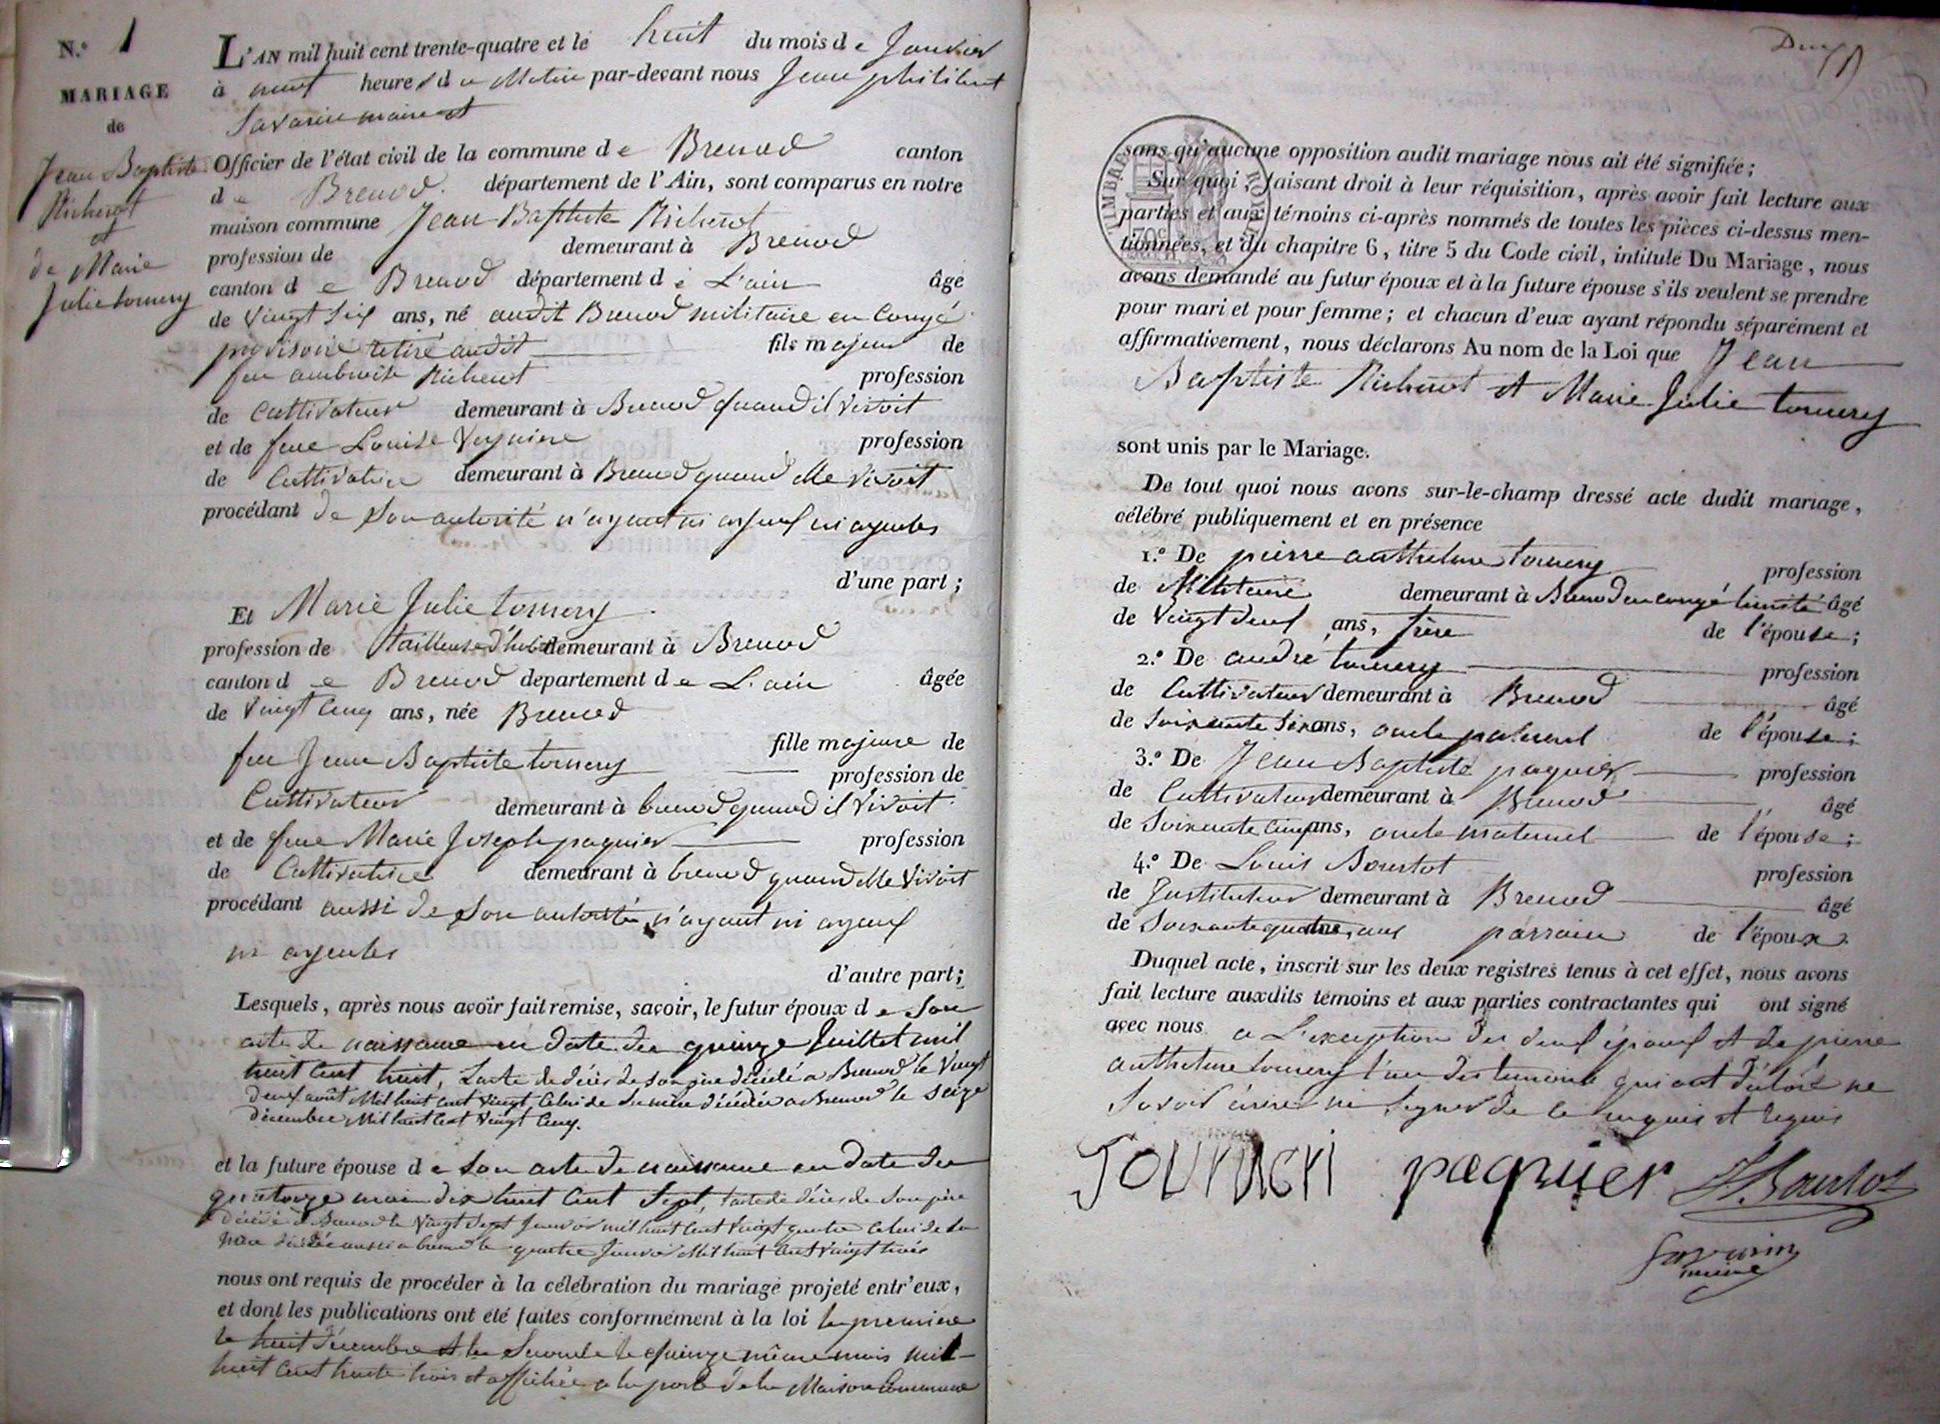 N.º 1
MARIAGE
de
Jean Baptiste
Richerot
et
de Marie
Julie tournery
L'AN mil huit cent trente-quatre et le huit du mois de Janvier
à neuf heures du Matin par-devant nous Jean philibert
Savarin maire et
Officier de l'état civil de la commune de Brenod canton
de Brenod département de l'Ain, sont comparus en notre
maison commune Jean Baptiste Richerot
profession de demeurant à Brenod
canton de Brenod département de L'ain âgé
de vingt six ans, né audit Brenod militaire en Congé
provisoire retiré audit fils majeur de
feu ambroise Richerot profession
de Cultivateur demeurant à Brenod quand il vivoit
et de feue Louise profession
de Cultivatrice demeurant à Brenod quand elle vivoit
procédant de Son autorité n'ayant ni ayeux ni ayeules
d'une part;
Et Marie Julie tournery
profession de tailleuse d'habit demeurant à Brenod
canton de Brenod departement de L'ain âgée
de vingt cinq ans, née Brenod
fille majeure de
feu Jean Baptiste tournery profession de
Cultivateur demeurant à brenod quand il vivoit
et de feue Marie Joseph paquier profession
de Cultivatrice demeurant à brenod quand elle vivoit
procédant aussi de Son autorité n'ayant ni ayeux
ni ayeules
d'autre part;
Lesquels, après nous avoir fait remise, savoir, le futur époux de Son
acte de naissance en date du quinze Juillet mil
huit cent huit, L'acte de décès de son père décédé a Brenod le vingt
deux août Mil huit cent vingt Celui de Sa mère décédée a Brenod le seize
décembre Mil huit cent vingt Cinq.
et la future épouse de Son acte de naissance en date du
quatorze mai dix huit Cent Sept, l'acte de décès de Son père
décédé à Brenod le vingt Sept Janvier mil huit Cent vingt quatre celui de Sa
mère décédée aussi a brenod le quatre Janvier Mil huit Cent vingt trois
nous ont requis de procéder à la célébration du mariage projeté entr'eux,
et dont les publications ont été faites conformément à la loi la première
le huit décembre et la Seconde le quinze même mois mil
huit cent trente trois et affichée a la porte de la Maison Commune
TIMBRE ROYAL
70c
sans qu'aucune opposition audit mariage nous ait été signifiée;
Sur quoi, faisant droit à leur réquisition, après avoir fait lecture aux
parties et aux témoins ci-après nommés de toutes les pièces ci-dessus men-
tionnées, et du chapitre 6, titre 5 du Code civil, intitulé Du Mariage, nous
avons demandé au futur époux et à la future épouse s'ils veulent se prendre
pour mari et pour femme; et chacun d'eux ayant répondu séparément et
affirmativement, nous déclarons Au nom de la Loi que Jean
Baptiste Richerot et Marie Julie tournery
sont unis par le Mariage.
De tout quoi nous avons sur-le-champ dressé acte dudit mariage,
célébré publiquement et en présence
1.º De pierre anthelme tournery profession
de Militaire demeurant à Brenod en congé limité âgé
de vingt deux ans, frère de l'épouse;
2.º De andré tournery profession
de Cultivateur demeurant à Brenod âgé
de Soixante Six ans, oncle paternel de l'épouse;
3.º De Jean Baptiste paquier profession
de Cultivateur demeurant à Brenod âgé
de Soixante cinq ans, oncle maternel de l'épouse;
4.º De Louis Bourtot profession
de Instituteur demeurant à Brenod âgé
de Soixante quatre ans parrain de l'époux
Duquel acte, inscrit sur les deux registres tenus à cet effet, nous avons
fait lecture auxdits témoins et aux parties contractantes qui ont signé
avec nous a L'exception des deux époux et de pierre
anthelme tournery l'un des temoins qui ont déclaré ne
Savoir écrire ni Signer de ce enquis et requis
Tourneri paquier Bourtot
Savarin
maire